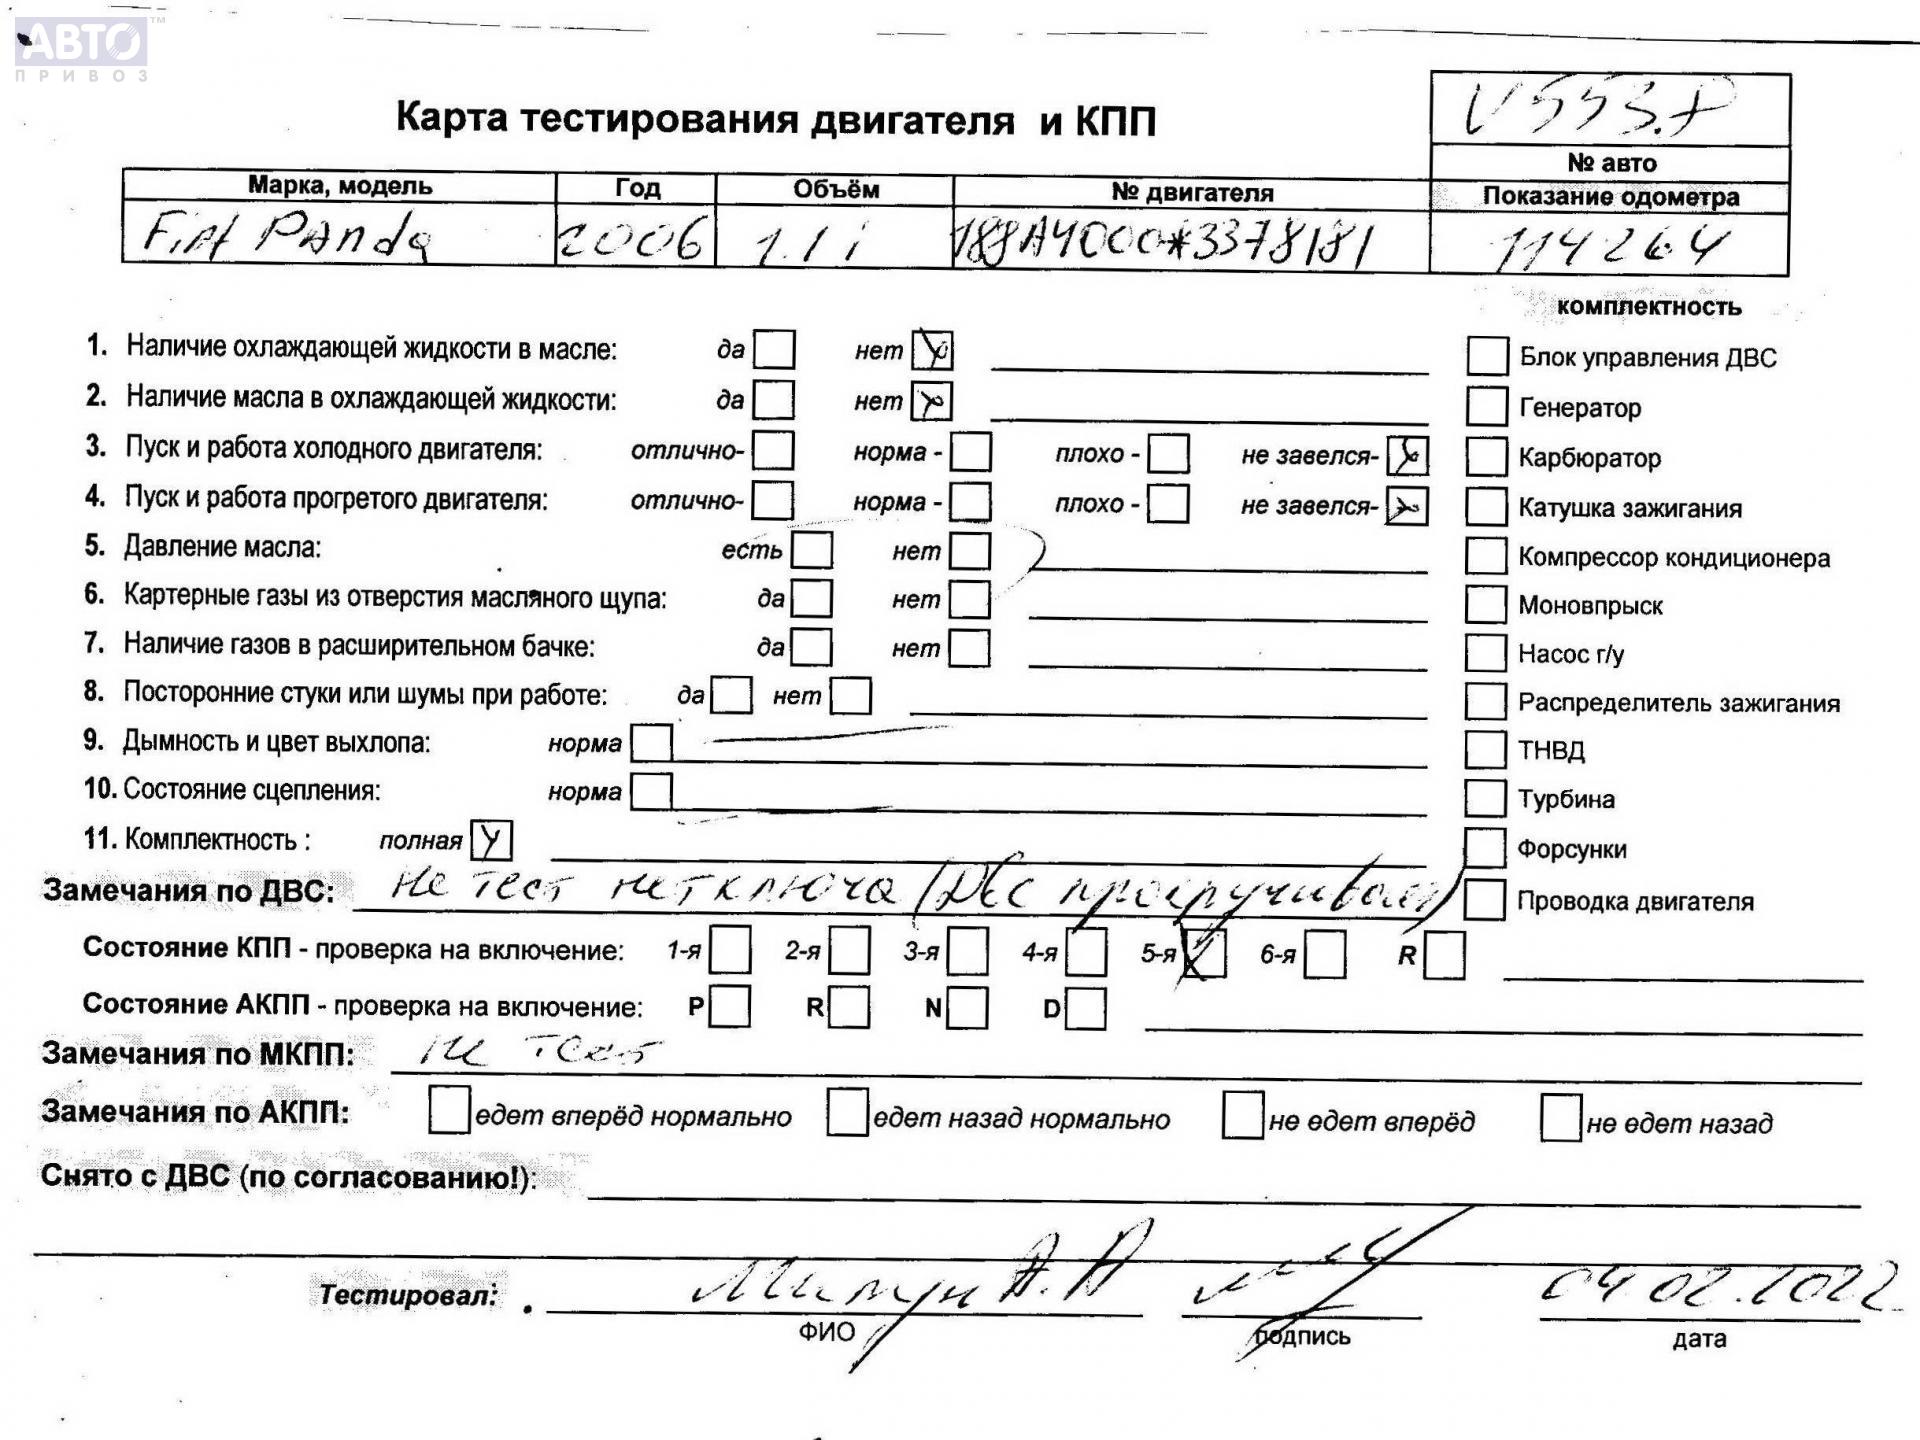 АВТО™
ПРИВОЗ
V553.P
Карта тестирования двигателя и КПП
№ авто
Марка, модель Год Объём № двигателя Показание одометра
Fiat Panda 2006 1.1 i 188A4000*3378181 114264
комплектность
1. Наличие охлаждающей жидкости в масле: да нет
Блок управления ДВС
2. Наличие масла в охлаждающей жидкости: да нет
Генератор
3. Пуск и работа холодного двигателя: отлично- норма - плохо - не завелся-
Карбюратор
4. Пуск и работа прогретого двигателя: отлично- норма - плохо - не завелся-
Катушка зажигания
5. Давление масла: есть нет
Компрессор кондиционера
6. Картерные газы из отверстия масляного щупа: да нет
Моновпрыск
7. Наличие газов в расширительном бачке: да нет
Насос г/у
8. Посторонние стуки или шумы при работе: да нет
Распределитель зажигания
9. Дымность и цвет выхлопа: норма
ТНВД
10. Состояние сцепления: норма
Турбина
11. Комплектность : полная
Форсунки
Замечания по ДВС: не тест нет ключа (Двс прокручивает)
Проводка двигателя
Состояние КПП - проверка на включение: 1-я 2-я 3-я 4-я 5-я 6-я R
Состояние АКПП - проверка на включение: P R N D
Замечания по МКПП: не тест
Замечания по АКПП: едет вперёд нормально едет назад нормально не едет вперёд не едет назад
Снято с ДВС (по согласованию!):
Тестировал: А.А 04.02.2022
ФИО подпись дата